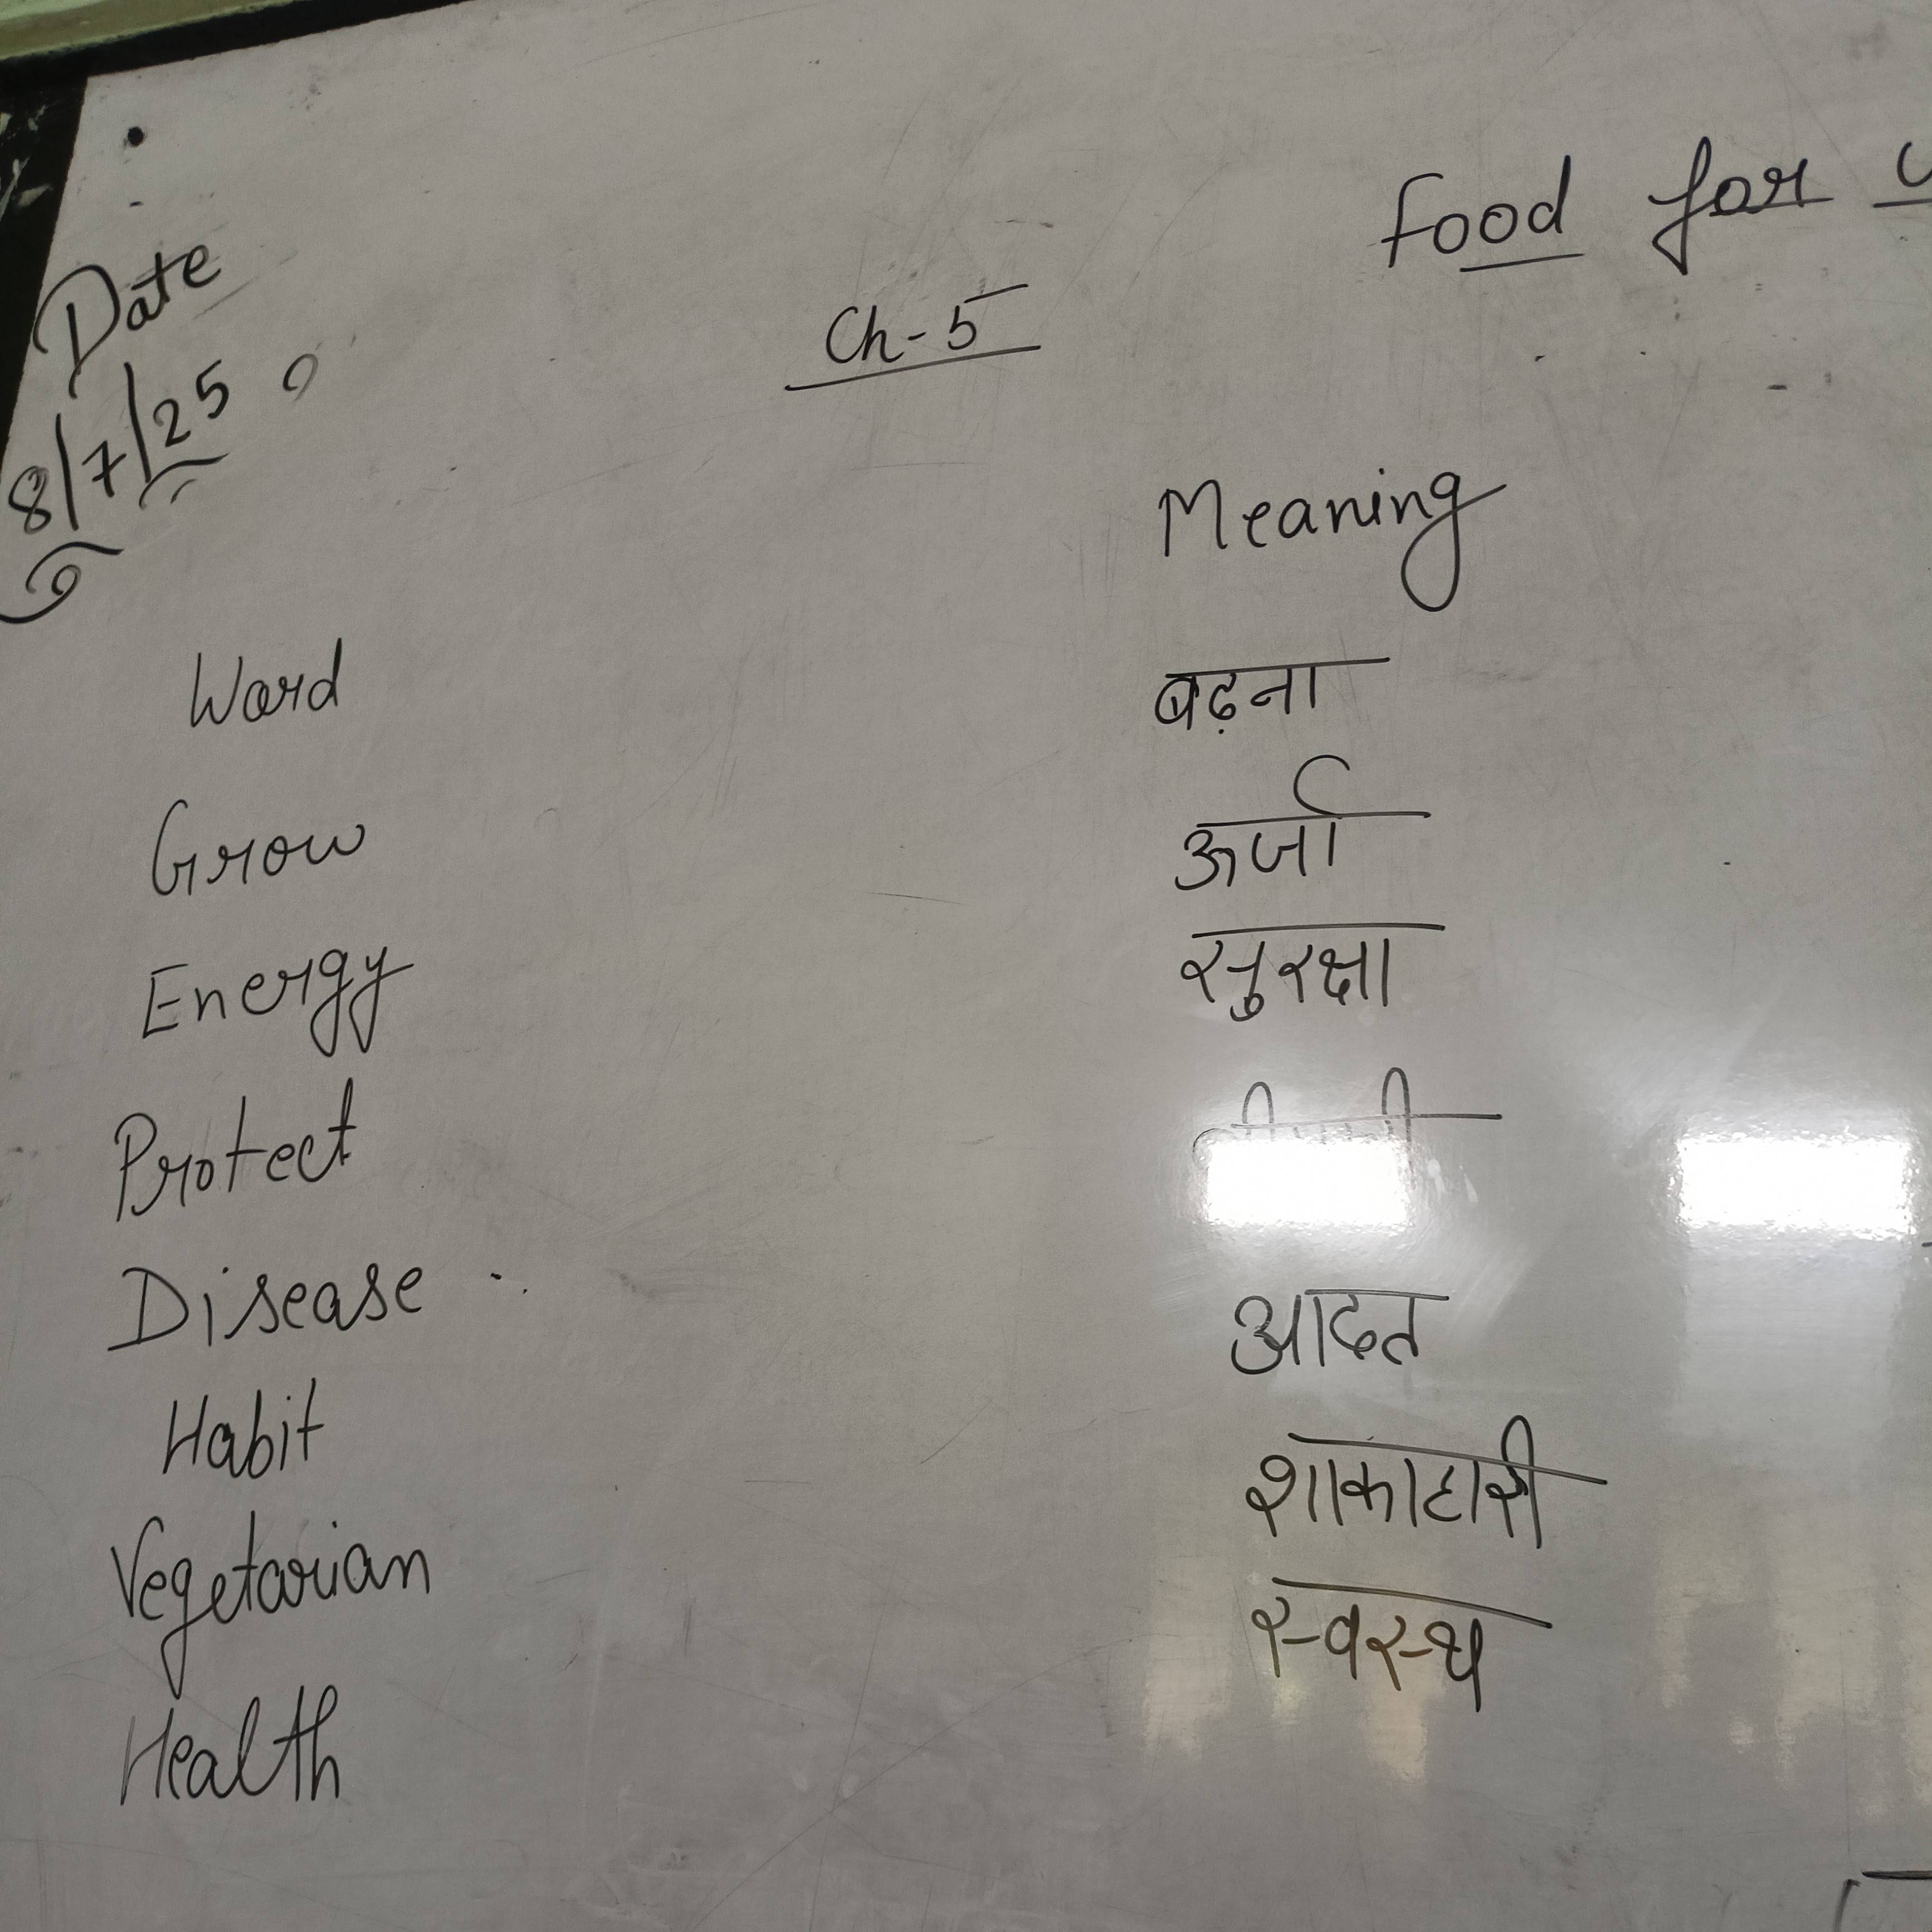 Food for
Date
8/7/25
Ch-5
Meaning
Word
बढ़ना
Grow
ऊर्जा
Energy
सुरक्षा
Protect
Disease
आदत
Habit
शाकाहारी
Vegetarian
स्वस्थ
Health